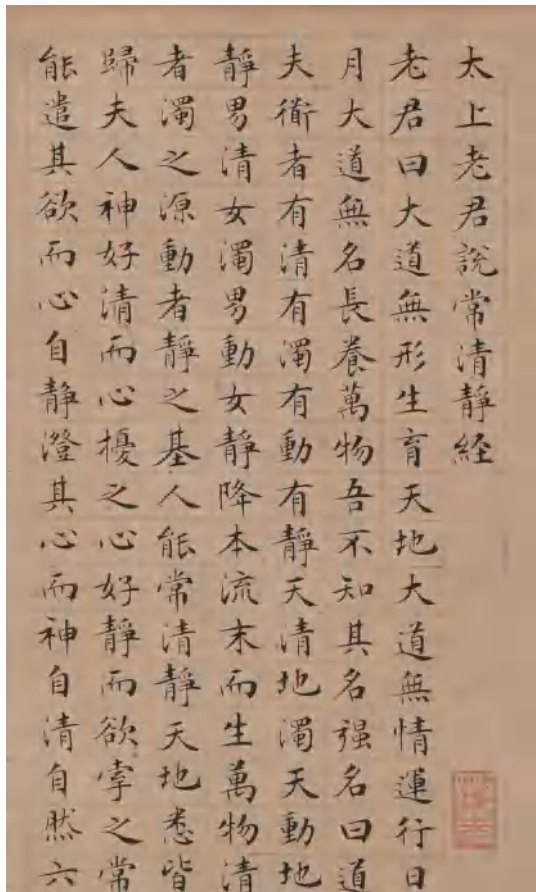 太上老君說常清靜経
老君曰大道無形生育天地大道無情運行日
月大道無名長養萬物吾不知其名强名曰道
夫衜者有清有濁有動有靜天清地濁天動地
靜男清女濁男動女靜降本流末而生萬物清
者濁之源動者靜之基人能常清靜天地悉皆
歸夫人神好清而心擾之心好靜而欲牽之常
能遣其欲而心自靜澄其心而神自清自然六